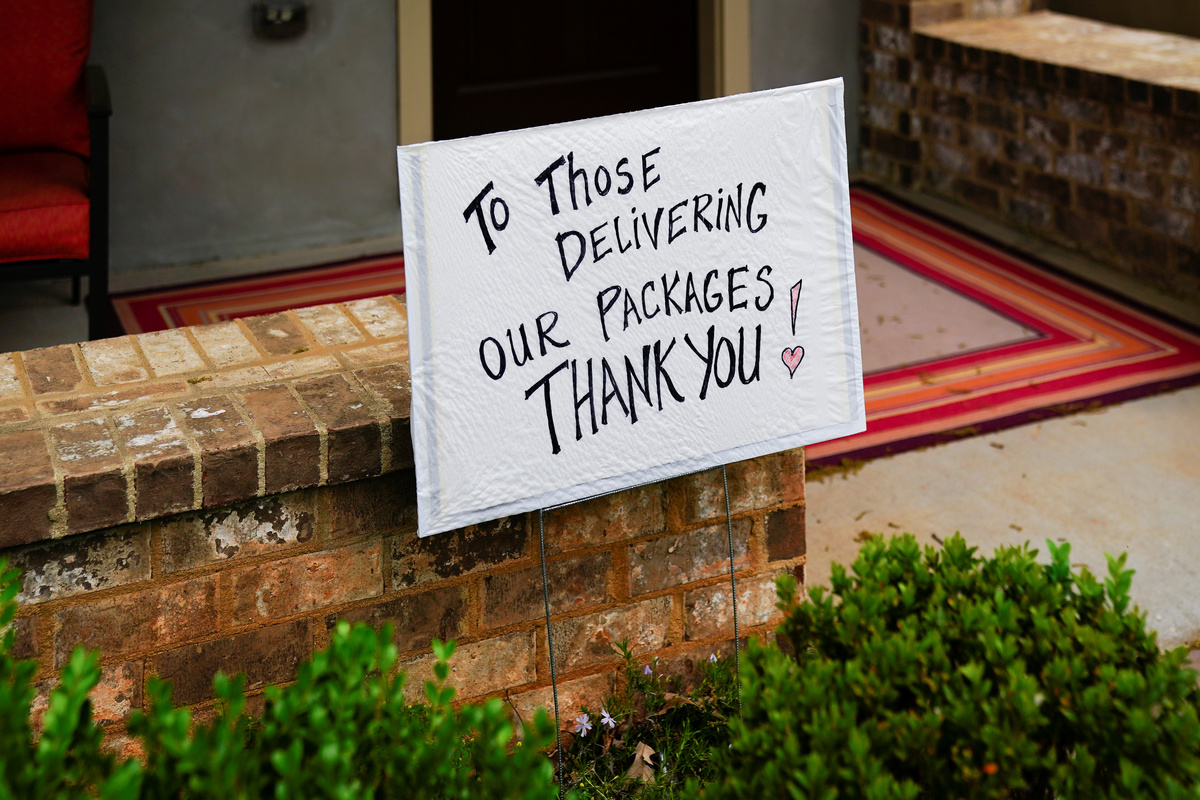 To Those
DELiVERiNG
OUR PACKAGES
THANK YOU!